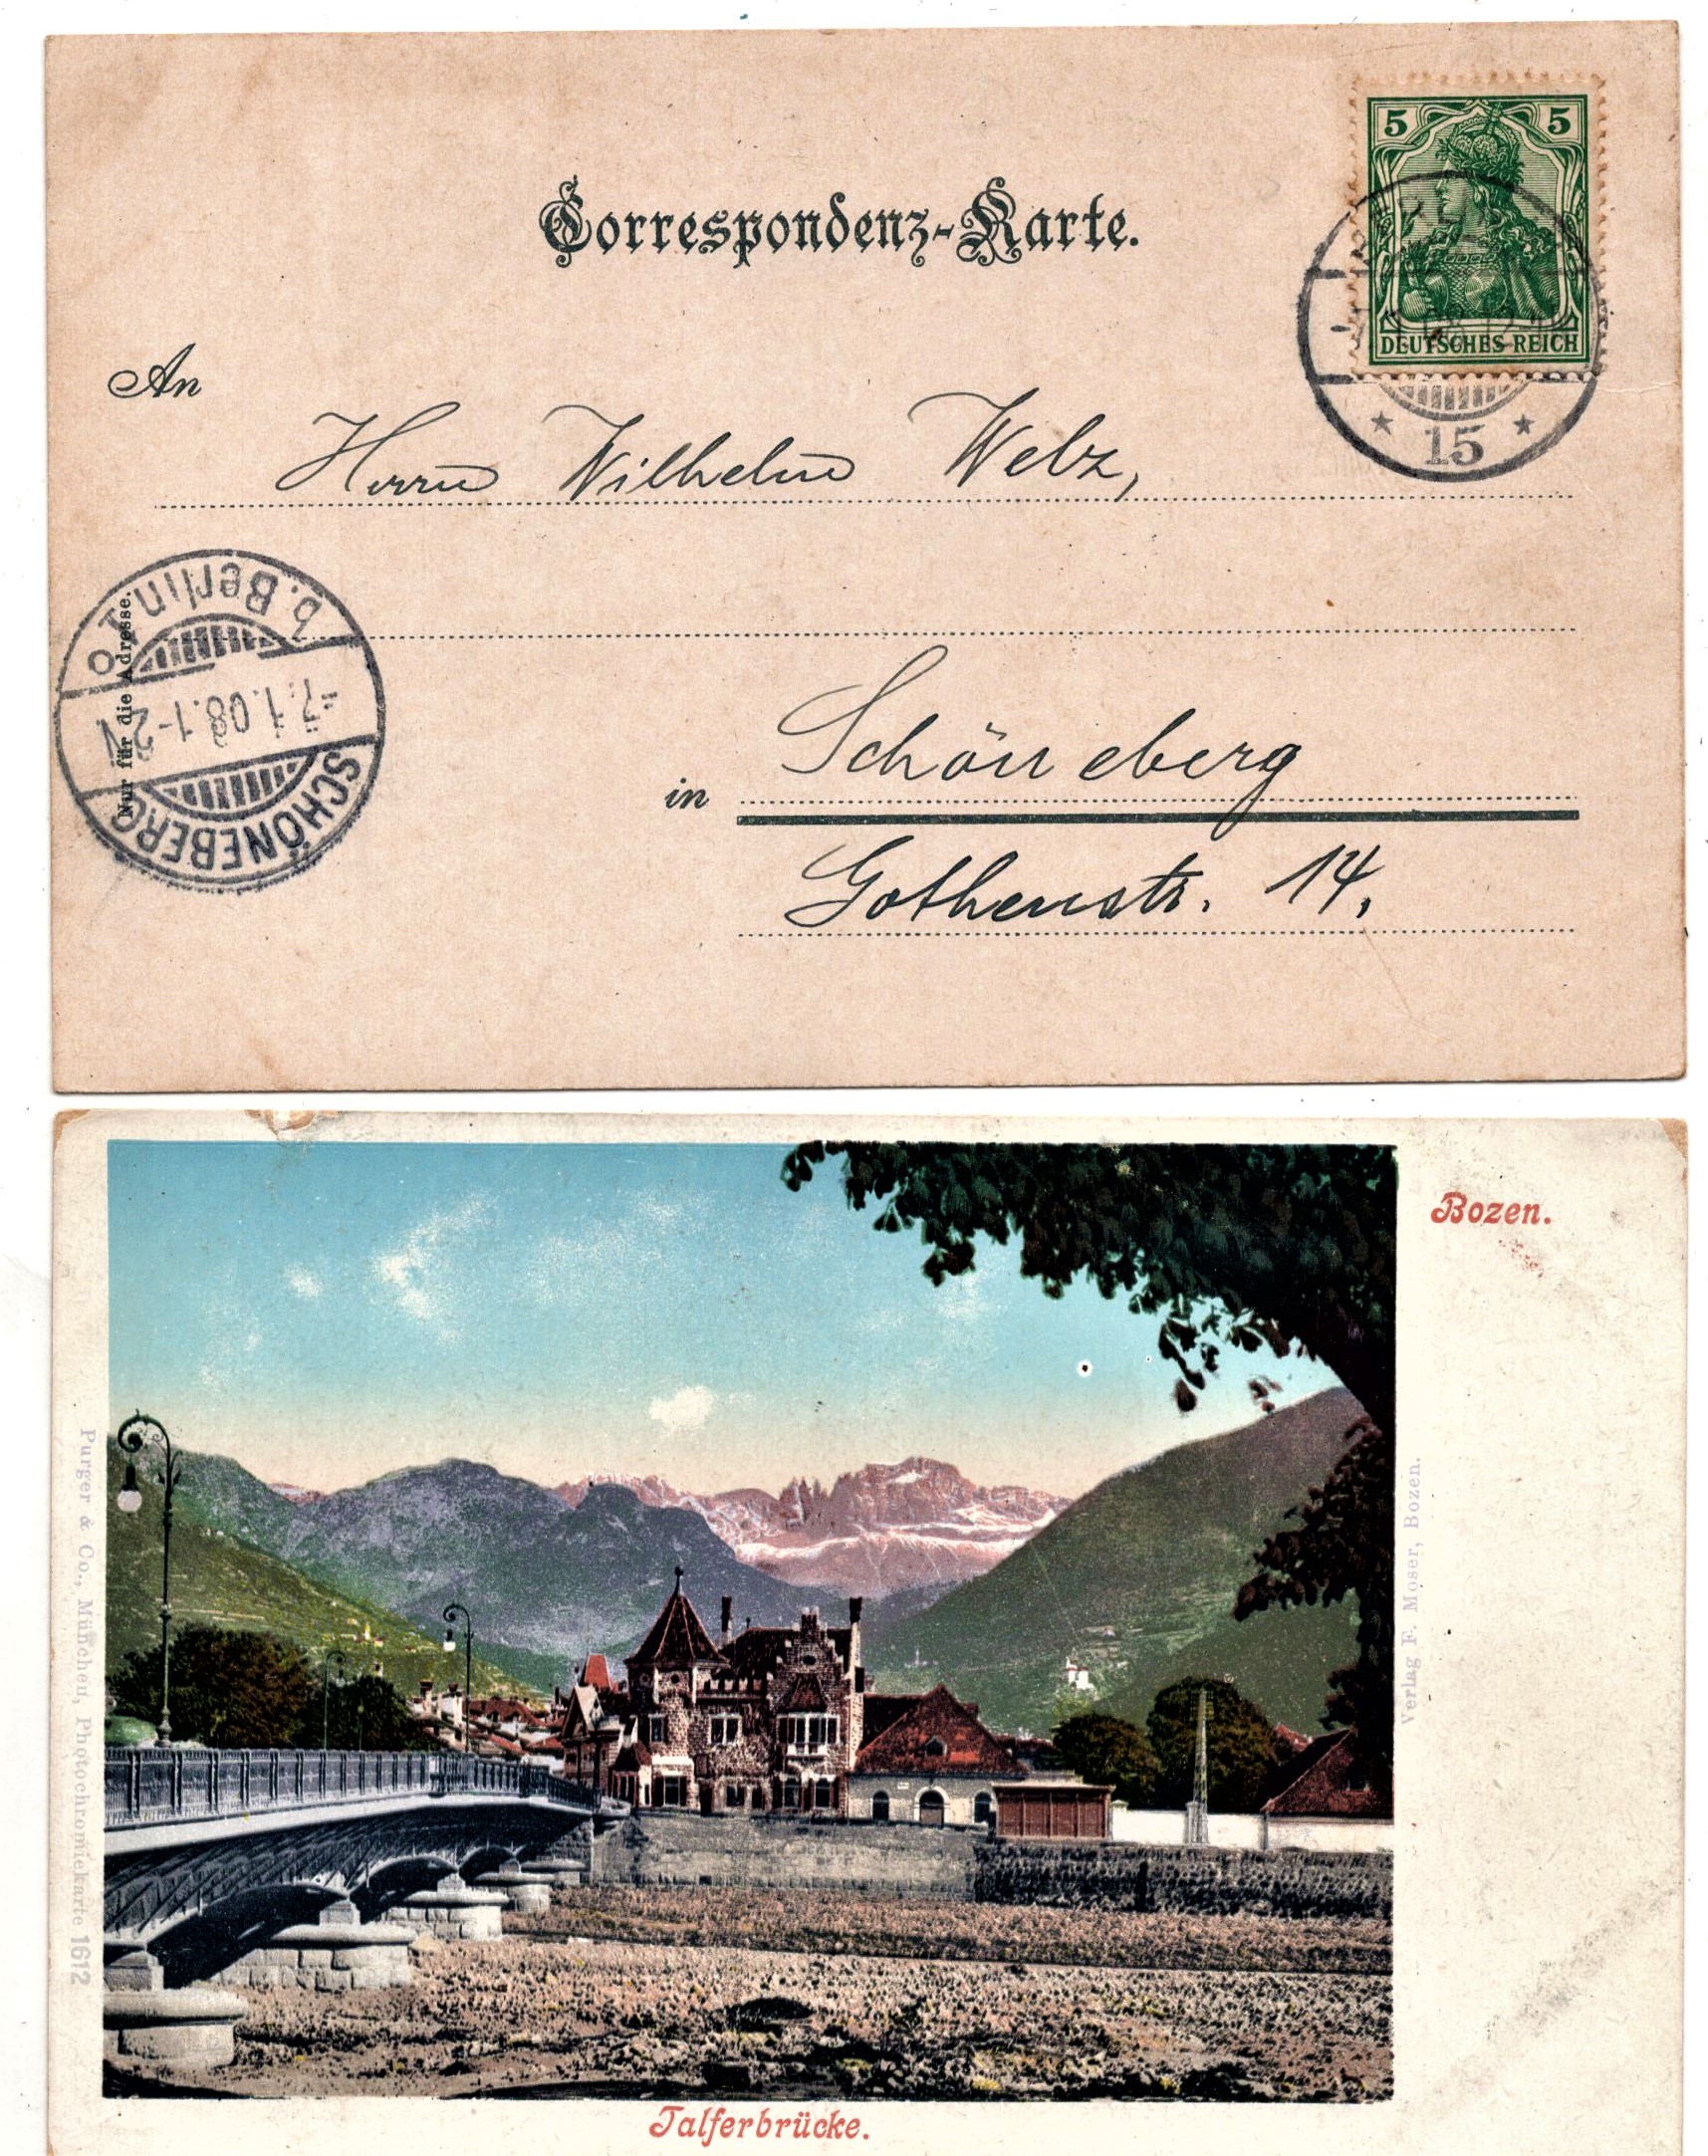 Correspondenz-Karte.
5 5
DEUTSCHES REICH
* 15 *
An
Herrn Wilhelm Welz,
Nur für die Adresse.
b. Berlin
7.1.08.1-2N
SCHÖNEBERG
in Schöneberg
Gothenstr. 14,
Bozen.
Purger & Co., München, Photochromiekarte 1612
Verlag F. Moser, Bozen.
Talferbrücke.